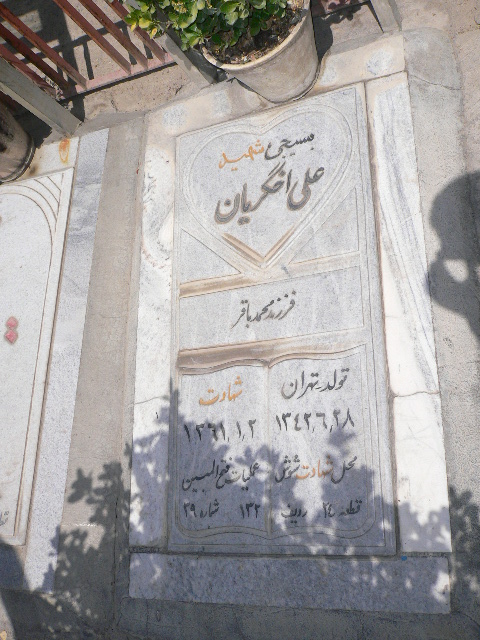 بسیجی شهید
علی اخگریان
فرزند محمد باقر
تولد تهران
۱۳۴۲,۶,۲۸
شهادت
۱۳۶۱,۱,۲
محل شهادت شوش
عملیات فتح المبین
قطعه ۲۴ ردیف ۱۳۲ شماره ۲۹